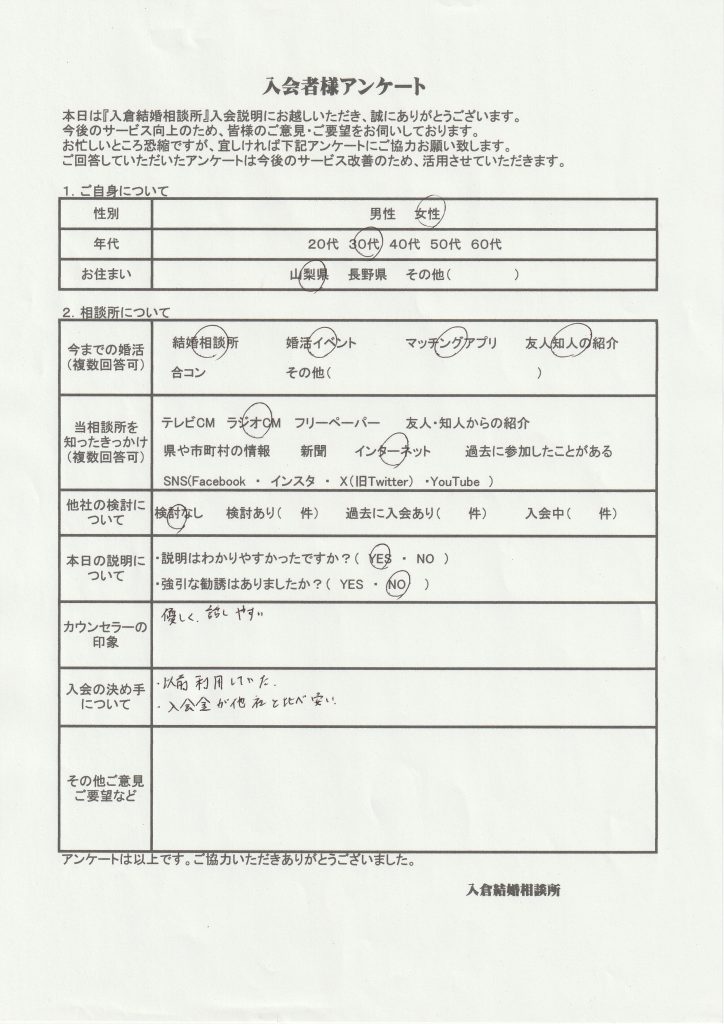 入会者様アンケート
本日は『入倉結婚相談所』入会説明にお越しいただき、誠にありがとうございます。
今後のサービス向上のため、皆様のご意見・ご要望をお伺いしております。
お忙しいところ恐縮ですが、宜しければ下記アンケートにご協力お願い致します。
ご回答していただいたアンケートは今後のサービス改善のため、活用させていただきます。
1．ご自身について
性別 男性 女性
年代 20代 30代 40代 50代 60代
お住まい 山梨県 長野県 その他( )
2．相談所について
今までの婚活
(複数回答可)
結婚相談所 婚活イベント マッチングアプリ 友人知人の紹介
合コン その他( )
当相談所を
知ったきっかけ
(複数回答可)
テレビCM ラジオCM フリーペーパー 友人・知人からの紹介
県や市町村の情報 新聞 インターネット 過去に参加したことがある
SNS(Facebook ・ インスタ ・ X(旧Twitter) ・YouTube )
他社の検討に
ついて
検討なし 検討あり( 件) 過去に入会あり( 件) 入会中( 件)
本日の説明に
ついて
・説明はわかりやすかったですか？( YES ・ NO )
・強引な勧誘はありましたか？( YES ・ NO )
カウンセラーの
印象
優しく、話しやすい
入会の決め手
について
・以前利用していた。
・入会金が他社と比べ安い。
その他ご意見
ご要望など
アンケートは以上です。ご協力いただきありがとうございました。
入倉結婚相談所